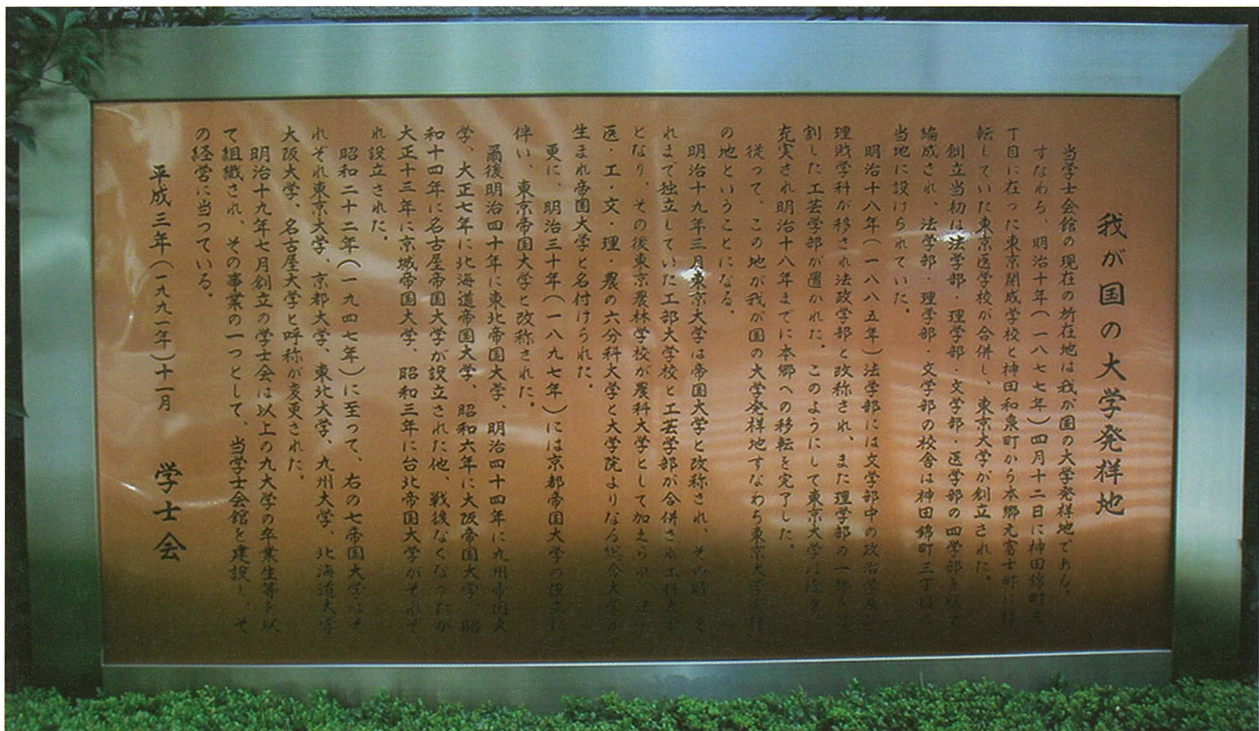 我が国の大学発祥地
当学士会館の現在の所在地は我が国の大学発祥地である。
すなわち、明治十年(一八七七年)四月十二日に神田錦町三
丁目に在った東京開成学校と神田和泉町から本郷元富士町に移
転していた東京医学校が合併し、東京大学が創立された。
創立当初は法学部・理学部・文学部・医学部の四学部を以て
編成され、法学部・理学部・文学部の校舎は神田錦町三丁目の
当地に設けられていた。
明治十八年(一八八五年)法学部には文学部中の政治学及び
理財学科が移され法政学部と改称され、また理学部の一部を
割した工芸学部が置かれた。このようにして東京大学は
充実され明治十八年までに本郷への移転を完了した。
従って、この地が我が国の大学発祥地すなわち東京大学発祥
の地ということになる。
明治十九年三月東京大学は帝国大学と改称され、その時、そ
れまで独立していた工部大学校と工芸学部が合併され工科大学
となり、その後東京農林学校が農科大学として加えられ、法・
医・工・文・理・農の六分科大学と大学院よりなる総合大学が
生まれ帝国大学と名付けられた。
更に、明治三十年(一八九七年)には京都帝国大学の設立に
伴い、東京帝国大学と改称された。
爾後明治四十年に東北帝国大学、明治四十四年に九州帝国大
学、大正七年に北海道帝国大学、昭和六年に大阪帝国大学、昭
和十四年に名古屋帝国大学が設立された他、戦後なくなったが
大正十三年に京城帝国大学、昭和三年に台北帝国大学がそれぞ
れ設立された。
昭和二十二年(一九四七年)に至って、右の七帝国大学はそ
れぞれ東京大学、京都大学、東北大学、九州大学、北海道大学
大阪大学、名古屋大学と呼称が変更された。
明治十九年七月創立の学士会は以上の九大学の卒業生等を以
て組織され、その事業の一つとして、当学士会館を建設し、そ
の経営に当っている。
平成三年(一九九一年)十一月 学士会